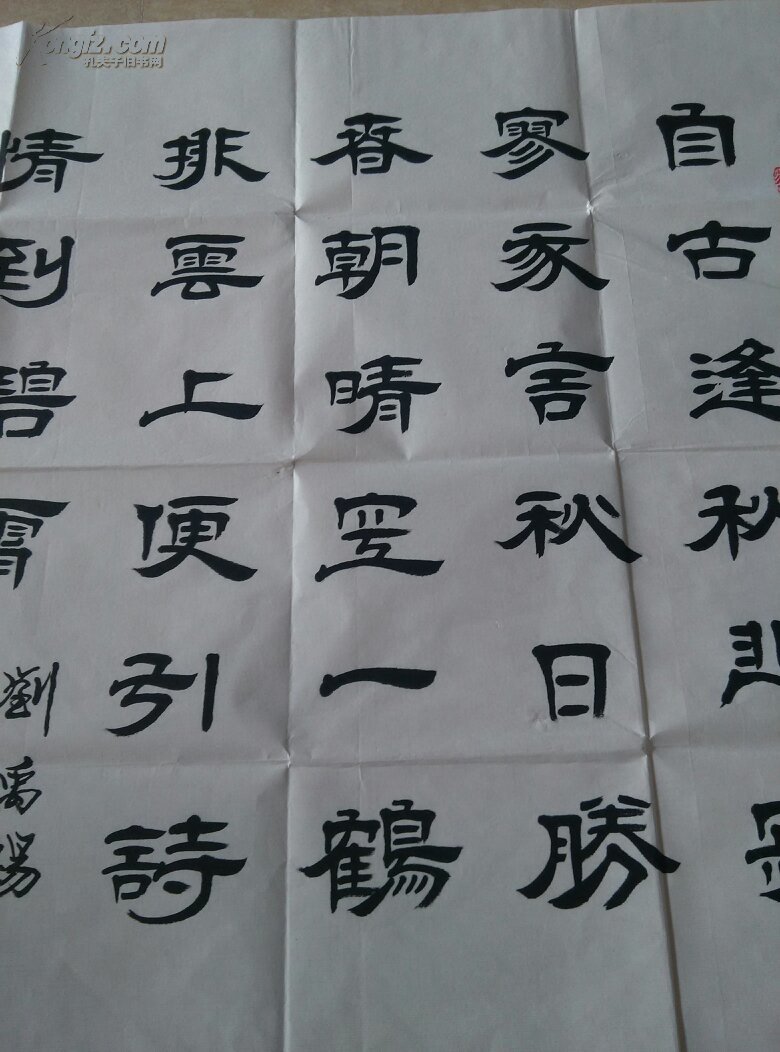 Kongfz.com
孔夫子旧书网
自古逢秋悲寂
寥我言秋日勝
春朝晴空一鶴
排雲上便引詩
情到碧霄 劉禹錫